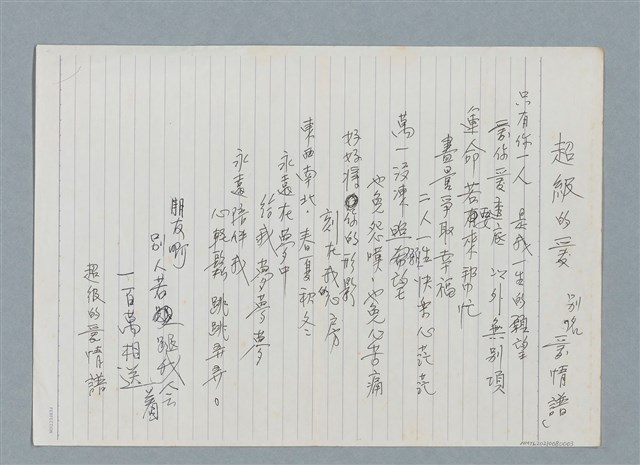 超級的愛 別名愛情譜
只有你一人 是我一生的願望
愛你愛透底 以外無別項
運命若願來幫忙
盡量爭取幸福
二人一陣快樂心茫茫
萬一沒凍照希望
也免怨嘆 也免心苦痛
好好將你的形影
刻在我的心房
東西南北.春夏秋冬
永遠在夢中
給我夢夢夢
永遠陪伴我
心輕鬆 跳跳弄弄。
朋友啊
別人若 我會
一百萬相送
超級的愛情譜